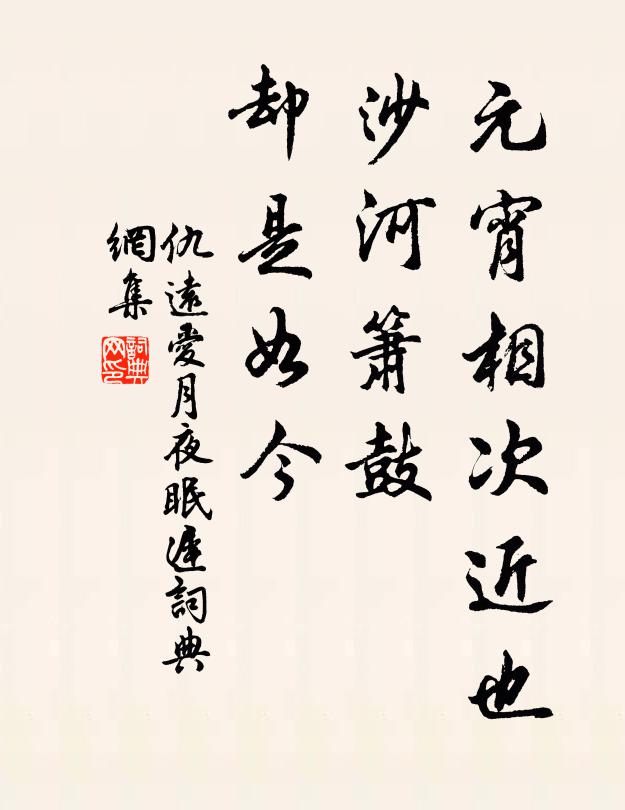 元宵相次近也
沙河簫鼓
却是如今
仇遠愛月夜眠遲詞典
網集
詞典網印